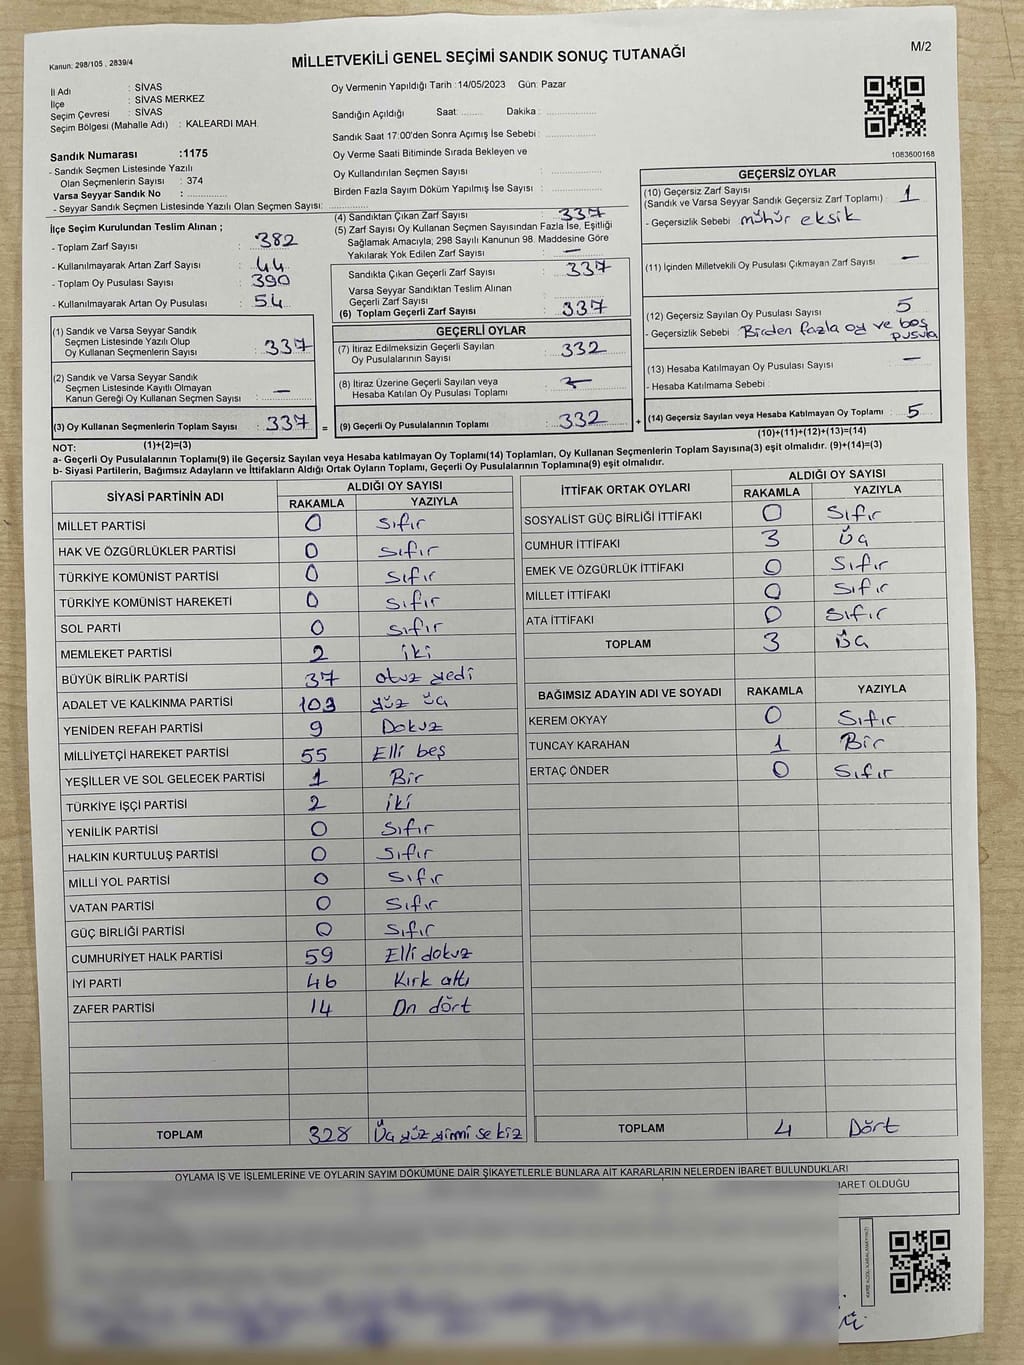 Kanun: 298/105 , 2839/4
MİLLETVEKİLİ GENEL SEÇİMİ SANDIK SONUÇ TUTANAĞI
M/2
İl Adı : SİVAS
İlçe : SİVAS MERKEZ
Seçim Çevresi : SİVAS
Seçim Bölgesi (Mahalle Adı) : KALEARDI MAH.
Sandık Numarası :1175
- Sandık Seçmen Listesinde Yazılı
Olan Seçmenlerin Sayısı : 374
Varsa Seyyar Sandık No :
- Seyyar Sandık Seçmen Listesinde Yazılı Olan Seçmen Sayısı:
Oy Vermenin Yapıldığı Tarih :14/05/2023 Gün: Pazar
Sandığın Açıldığı Saat: Dakika :
Sandık Saat 17:00'den Sonra Açımış İse Sebebi :
Oy Verme Saati Bitiminde Sırada Bekleyen ve
Oy Kullandırılan Seçmen Sayısı :
Birden Fazla Sayım Döküm Yapılmış İse Sayısı :
1083600168
İlçe Seçim Kurulundan Teslim Alınan ;
- Toplam Zarf Sayısı : 382
- Kullanılmayarak Artan Zarf Sayısı : 44
- Toplam Oy Pusulası Sayısı : 390
- Kullanılmayarak Artan Oy Pusulası : 54
(1) Sandık ve Varsa Seyyar Sandık
Seçmen Listesinde Yazılı Olup
Oy Kullanan Seçmenlerin Sayısı : 337
(2) Sandık ve Varsa Seyyar Sandık
Seçmen Listesinde Kayıtlı Olmayan
Kanun Gereği Oy Kullanan Seçmen Sayısı : —
(3) Oy Kullanan Seçmenlerin Toplam Sayısı : 337
(1)+(2)=(3)
(4) Sandıktan Çıkan Zarf Sayısı : 337
(5) Zarf Sayısı Oy Kullanan Seçmen Sayısından Fazla İse, Eşitliği
Sağlamak Amacıyla, 298 Sayılı Kanunun 98. Maddesine Göre
Yakılarak Yok Edilen Zarf Sayısı : —
Sandıkta Çıkan Geçerli Zarf Sayısı : 337
Varsa Seyyar Sandıktan Teslim Alınan
Geçerli Zarf Sayısı :
(6) Toplam Geçerli Zarf Sayısı : 337
GEÇERLİ OYLAR
(7) İtiraz Edilmeksizin Geçerli Sayılan
Oy Pusulalarının Sayısı : 332
(8) İtiraz Üzerine Geçerli Sayılan veya
Hesaba Katılan Oy Pusulası Toplamı :
= (9) Geçerli Oy Pusulalarının Toplamı : 332 +
GEÇERSİZ OYLAR
(10) Geçersiz Zarf Sayısı
(Sandık ve Varsa Seyyar Sandık Geçersiz Zarf Toplamı) : 1
- Geçersizlik Sebebi : mühür eksik
(11) İçinden Milletvekili Oy Pusulası Çıkmayan Zarf Sayısı : —
(12) Geçersiz Sayılan Oy Pusulası Sayısı : 5
- Geçersizlik Sebebi : Birden fazla oy ve boş
pusula
(13) Hesaba Katılmayan Oy Pusulası Sayısı : —
- Hesaba Katılmama Sebebi :
(14) Geçersiz Sayılan veya Hesaba Katılmayan Oy Toplamı : 5
(10)+(11)+(12)+(13)=(14)
NOT:
a- Geçerli Oy Pusulalarının Toplamı(9) ile Geçersiz Sayılan veya Hesaba Katılmayan Oy Toplamı(14) Toplamları, Oy Kullanan Seçmenlerin Toplam Sayısına(3) eşit olmalıdır. (9)+(14)=(3)
b- Siyasi Partilerin, Bağımsız Adayların ve İttifakların Aldığı Ortak Oyların Toplamı, Geçerli Oy Pusulalarının Toplamına(9) eşit olmalıdır.
SİYASİ PARTİNİN ADI ALDIĞI OY SAYISI
RAKAMLA YAZIYLA
MİLLET PARTİSİ 0 Sıfır
HAK VE ÖZGÜRLÜKLER PARTİSİ 0 Sıfır
TÜRKİYE KOMÜNİST PARTİSİ 0 Sıfır
TÜRKİYE KOMÜNİST HAREKETİ 0 Sıfır
SOL PARTİ 0 Sıfır
MEMLEKET PARTİSİ 2 iki
BÜYÜK BİRLİK PARTİSİ 37 otuz yedi
ADALET VE KALKINMA PARTİSİ 103 yüz üç
YENİDEN REFAH PARTİSİ 9 Dokuz
MİLLİYETÇİ HAREKET PARTİSİ 55 Elli beş
YEŞİLLER VE SOL GELECEK PARTİSİ 1 Bir
TÜRKİYE İŞÇİ PARTİSİ 2 iki
YENİLİK PARTİSİ 0 Sıfır
HALKIN KURTULUŞ PARTİSİ 0 Sıfır
MİLLİ YOL PARTİSİ 0 Sıfır
VATAN PARTİSİ 0 Sıfır
GÜÇ BİRLİĞİ PARTİSİ 0 Sıfır
CUMHURİYET HALK PARTİSİ 59 Elli dokuz
İYİ PARTİ 46 Kırk altı
ZAFER PARTİSİ 14 On dört
TOPLAM 328 Üç yüz yirmi sekiz
İTTİFAK ORTAK OYLARI ALDIĞI OY SAYISI
RAKAMLA YAZIYLA
SOSYALİST GÜÇ BİRLİĞİ İTTİFAKI 0 Sıfır
CUMHUR İTTİFAKI 3 Üç
EMEK VE ÖZGÜRLÜK İTTİFAKI 0 Sıfır
MİLLET İTTİFAKI 0 Sıfır
ATA İTTİFAKI 0 Sıfır
TOPLAM 3 Üç
BAĞIMSIZ ADAYIN ADI VE SOYADI RAKAMLA YAZIYLA
KEREM OKYAY 0 Sıfır
TUNCAY KARAHAN 1 Bir
ERTAÇ ÖNDER 0 Sıfır
TOPLAM 4 Dört
OYLAMA İŞ VE İŞLEMLERİNE VE OYLARIN SAYIM DÖKÜMÜNE DAİR ŞİKAYETLERLE BUNLARA AİT KARARLARIN NELERDEN İBARET BULUNDUKLARI
İBARET OLDUĞU